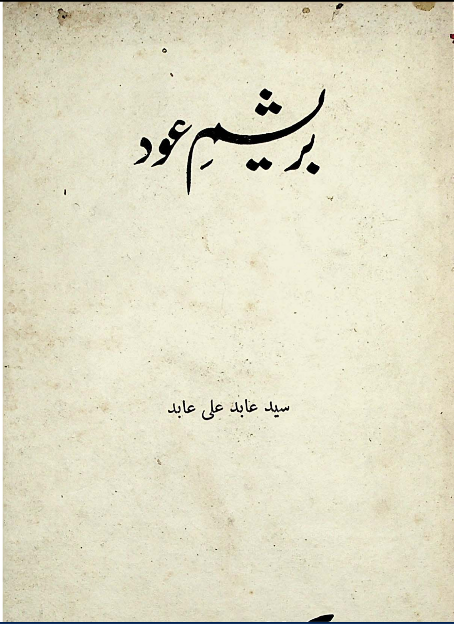 بریشمِ عود
سید عابد علی عابد